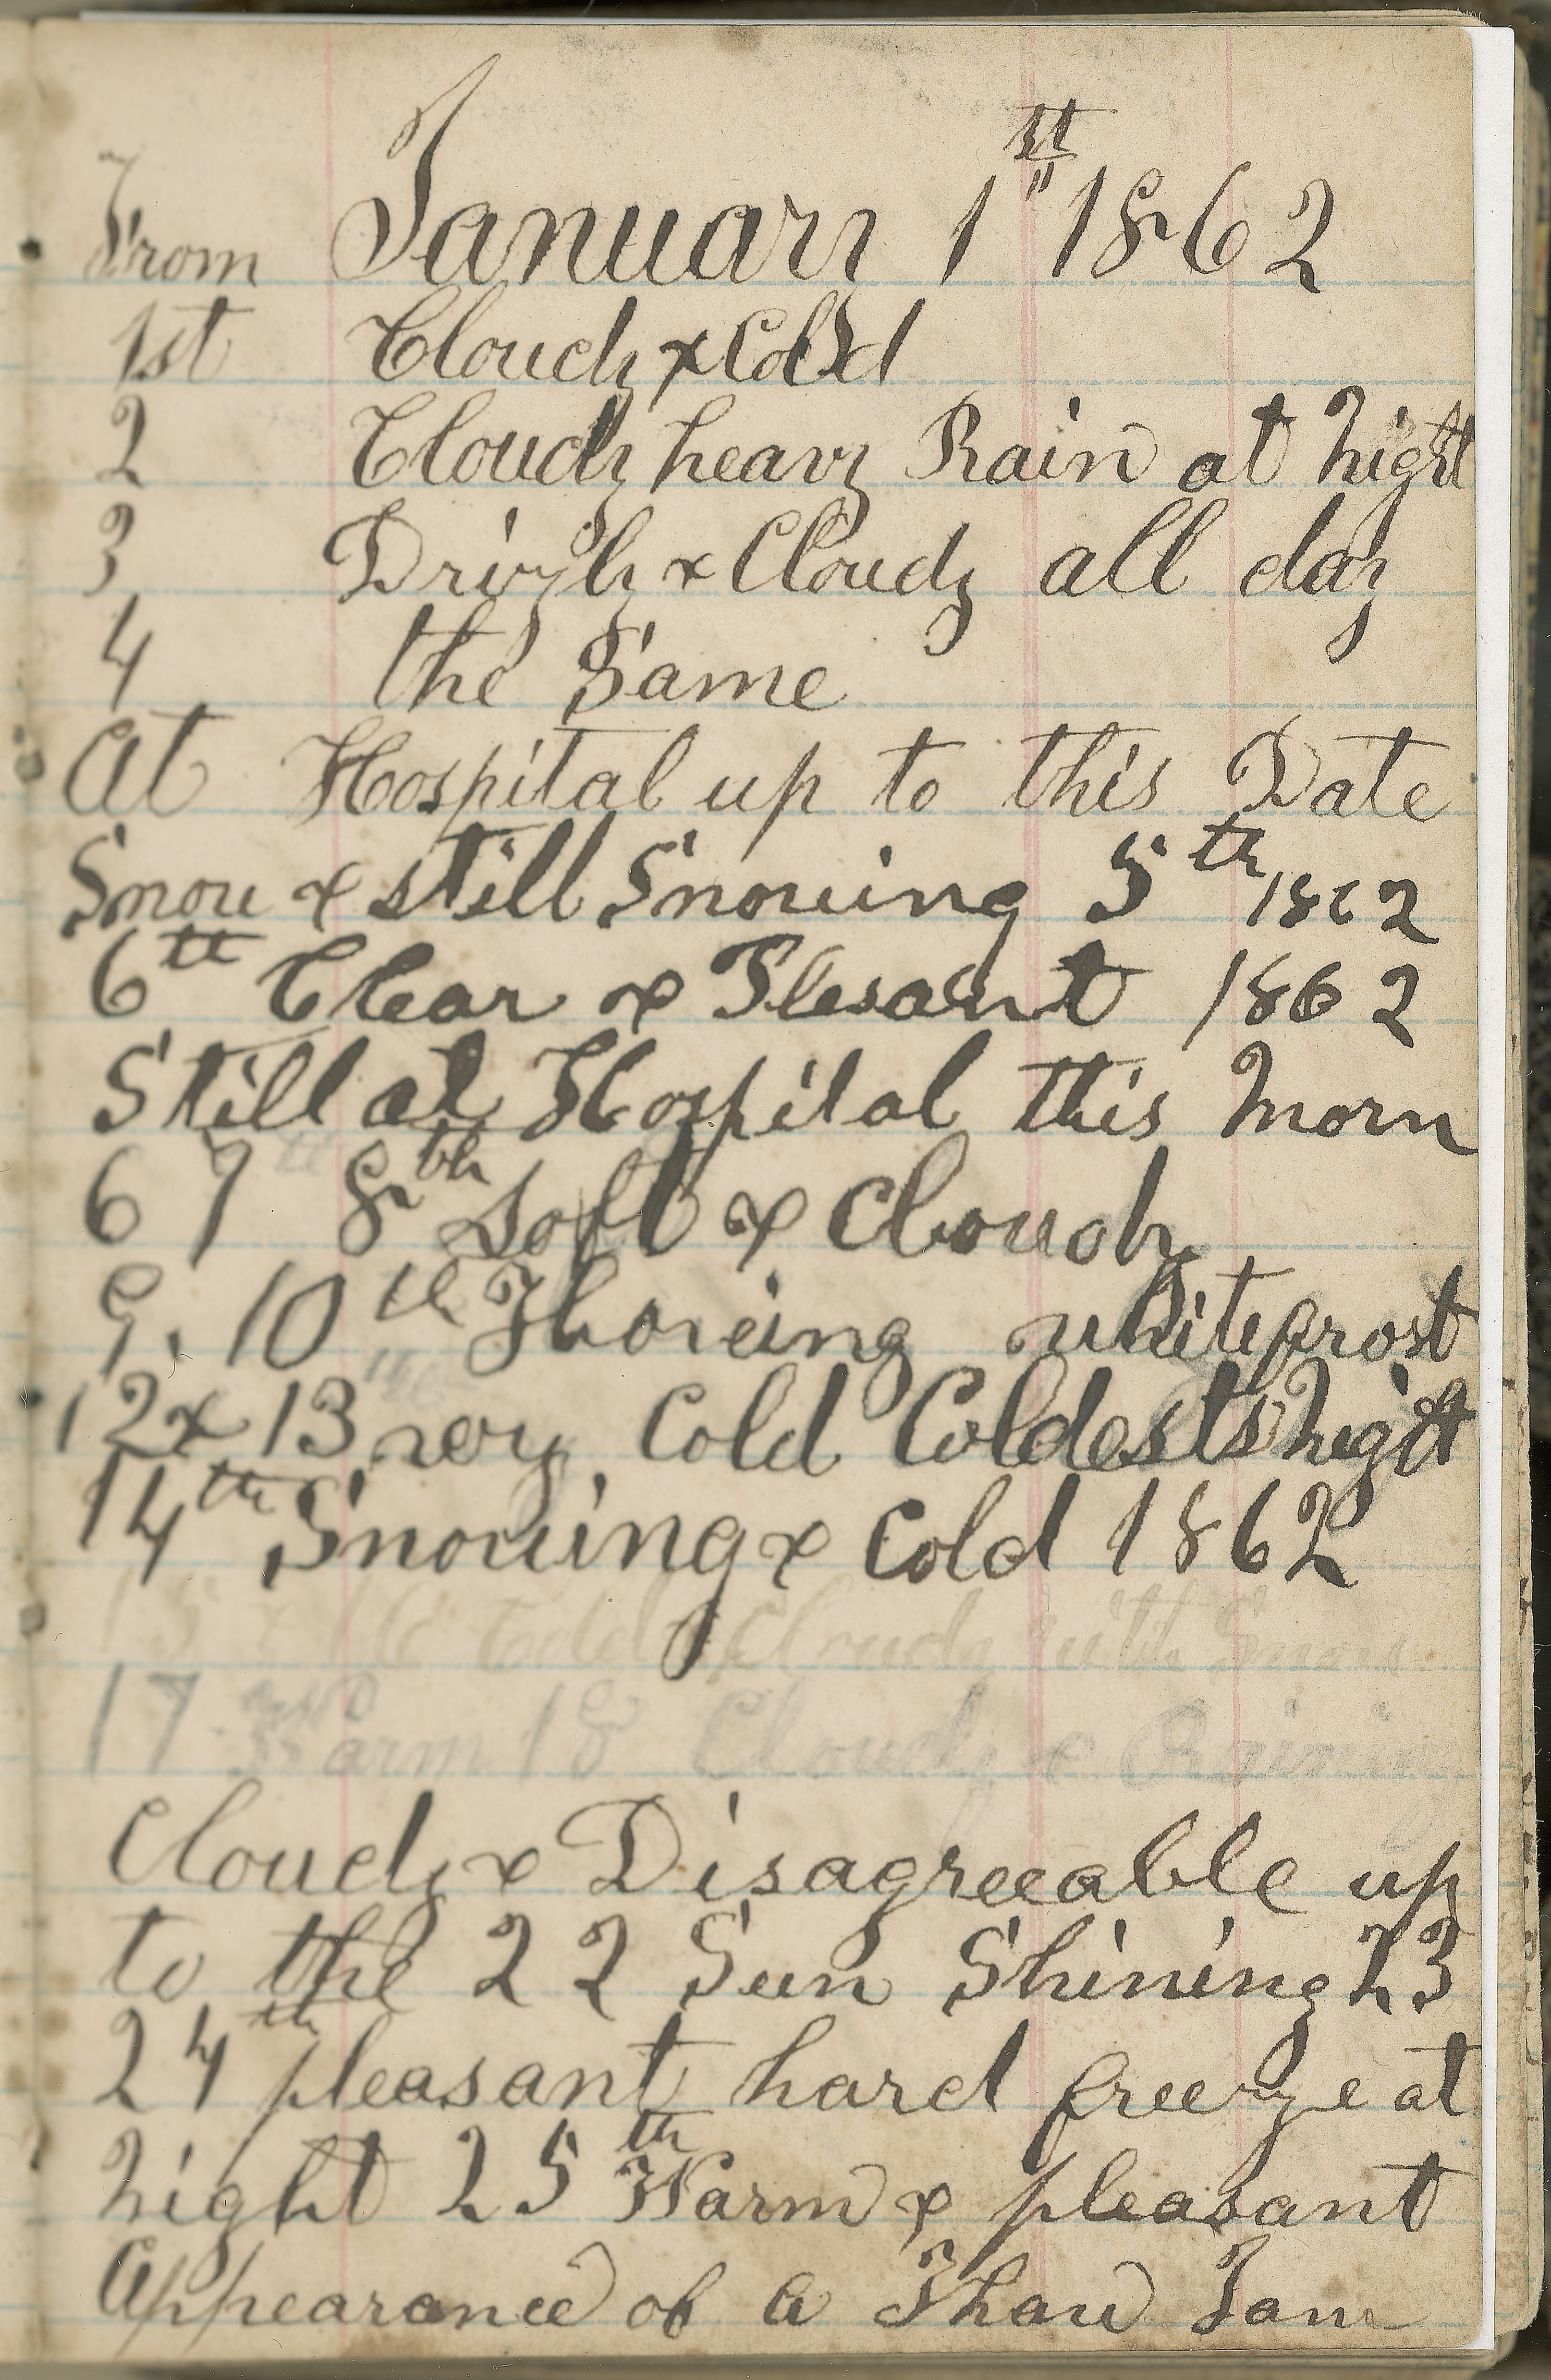 From January 1st 1862
1st Cloudy & Cold
2 Cloudy heavy Rain at Night
3 Drizly & Cloudy all day
4 the Same
At Hospital up to this Date
Snow & still Snowing 5th 1862
6th Clear & Plesant 1862
Still at Hospital this Morn
6 7 8th Soft & Cloudy
9. 10th Thowing white frost
12 & 13 very Cold Coldests Night
14th Snowing & Cold 1862
15 & 16 Cold & Cloudy with Snow
17 Warm 18 Cloudy & Raining
Cloudy & Disagreeable up
to the 22 Sun Shining 23
24th pleasant hard freeze at
Night 25th Warm & pleasant
Appearance of a Thaw Jan